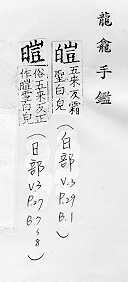 龍龕手鑑
皚 五來反霜雪白皃
(白部 V.3 P.29 B.1)
暟 俗五來反正作皚雪白皃
(日部 V.3 P.27 B.7~8)